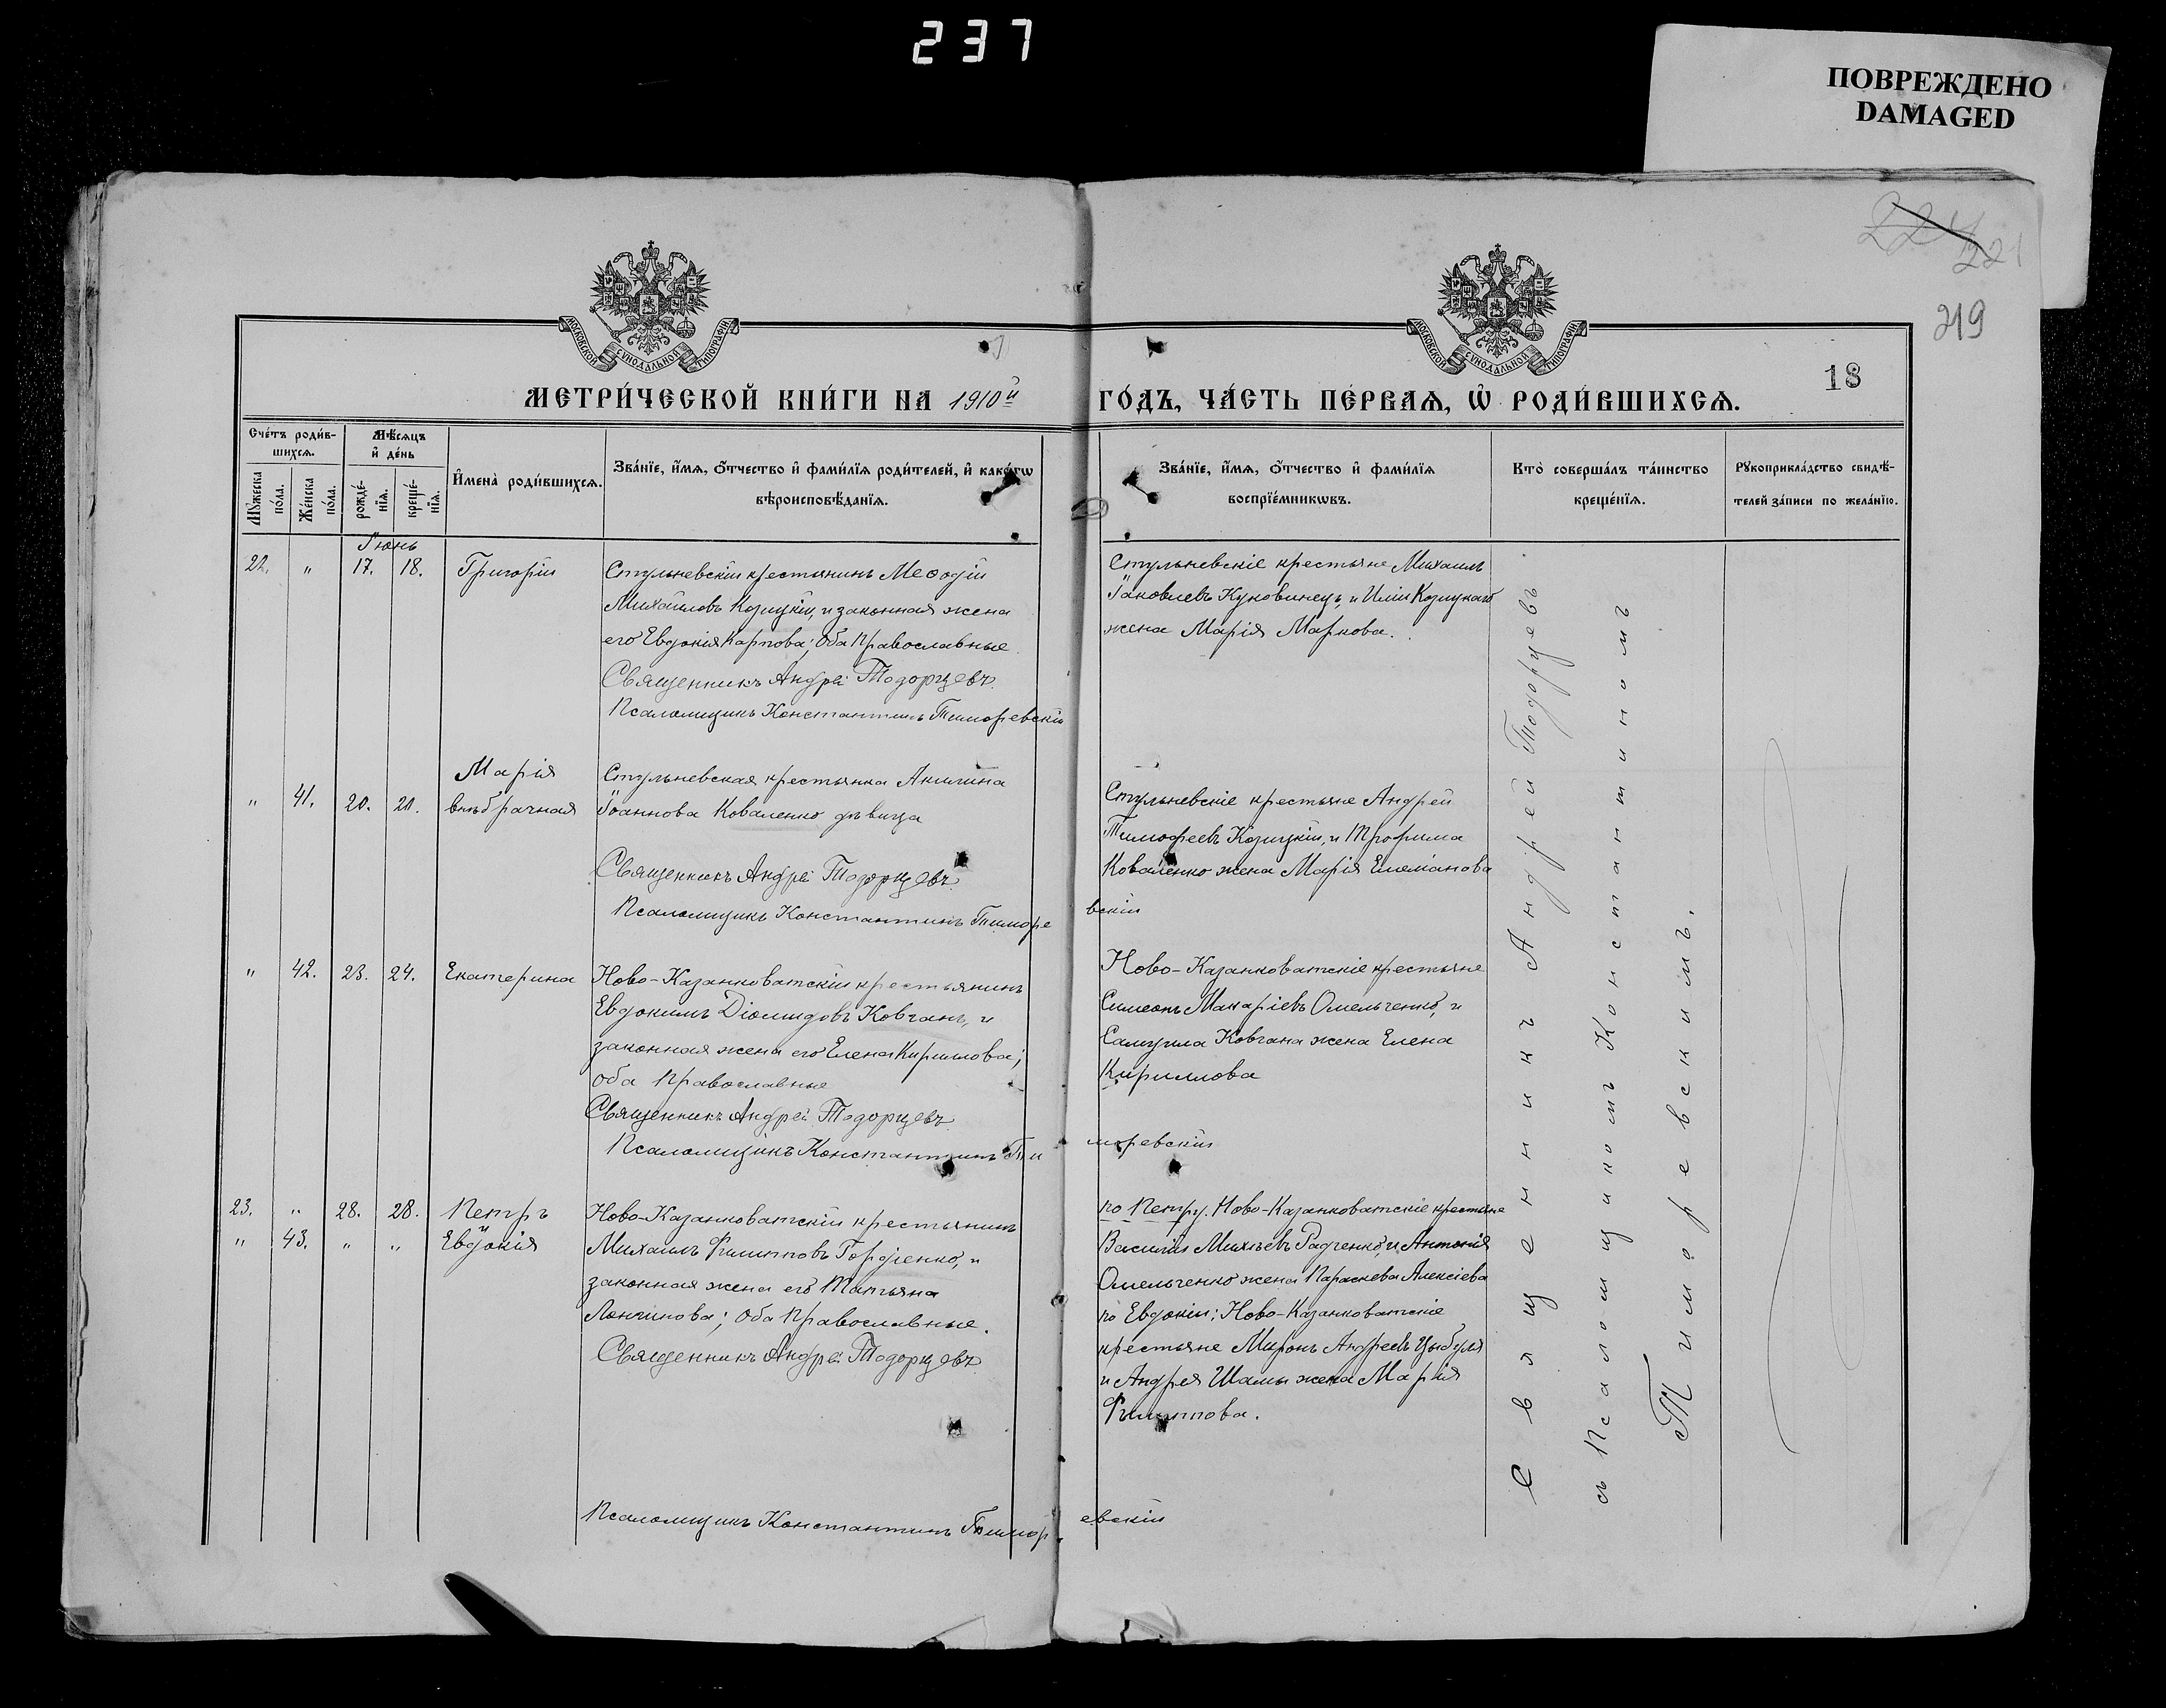 237
ПОВРЕЖДЕНО
DAMAGED
221
219
МОСКОВСКОЙ СѴНОДАЛЬНОЙ ТИПОГРАФІИ
МОСКОВСКОЙ СѴНОДАЛЬНОЙ ТИПОГРАФІИ
18
МЕТРИ́ЧЕСКОЙ КНИ́ГИ НА 1910й ГО́ДЪ, ЧА́СТЬ ПЕ́РВАѦ, Ѡ РОДИ́ВШИХСѦ.
Сче́тъ роди́в-
шихсѧ.
Мꙋ́жеска по́ла.
Же́нска по́ла.
Мѣ́сѧцъ
и҆ де́нь
рожде́-нїѧ.
креще́-нїѧ.
И҆мена̀ роди́вшихсѧ.
Зва́нїе, и҆́мѧ, ѻ҆́тчество и҆ фами́лїѧ роди́телей, и҆ како́гѡ
вѣроисповѣ́данїѧ.
Зва́нїе, и҆́мѧ, ѻ҆́тчество и҆ фами́лїѧ
воспрїе́мникѡвъ.
Кто̀ соверша́лъ та́инство
креще́нїѧ.
Рꙋкоприкла́дство свидѣ́-
телей за́писи по жела́нїю.
Іюнь
22. " 17. 18. Григорій
Стульневскій крестьянинъ Меѳодій
Михайловъ Козицкій, и законная жена
его Евдокія Карпова; Оба Православные
Священникъ Андрей Тодорцевъ
Псаломщикъ Константинъ Тиморевскій
Стульневскіе крестьяне Михаилъ
Іаковлевъ Куковинецъ, и Иліи Козицкаго
жена Марія Маркова.
Марія
" 41. 20. 21. внѣбрачная
Стульневская крестьянка Акилина
Іоаннова Коваленко дѣвица
Священникъ Андрей Тодорцевъ
Псаломщикъ Константинъ Тиморевскій
Стульневскіе крестьяне Андрей
Тимофеевъ Козицкій, и Трофима
Коваленко жена Марія Емеліанова
" 42. 23. 24. Екатерина
Ново-Казанковатскій крестьянинъ
Евдокимъ Діомидовъ Ковганъ, и
законная жена его Елена Кириллова;
оба Православные
Священникъ Андрей Тодорцевъ
Псаломщикъ Константинъ Тиморевскій
Ново-Казанковатскіе крестьяне
Симеонъ Макаріевъ Омельченко, и
Самуила Ковгана жена Елена
Кириллова
23. " 28. 28. Петръ
и
" 43. " " Евдокія
Ново-Казанковатскій крестьянинъ
Михаилъ Филипповъ Гордіенко, и
законная жена его Татьяна
Лонгинова; Оба Православные.
Священникъ Андрей Тодорцевъ
Псаломщикъ Константинъ Тиморевскій
по Петру. Ново-Казанковатскіе крестьяне
Василій Михѣевъ Радченко, и Антонія
Омельченко жена Параскева Алексіева
по Евдокіи: Ново-Казанковатскіе
крестьяне Миронъ Андреевъ Цыбуля
и Андрея Шамы жена Марія
Филиппова.
Священникъ Андрей Тодорцевъ
съ Псаломщикомъ Константиномъ
Тиморевскимъ.